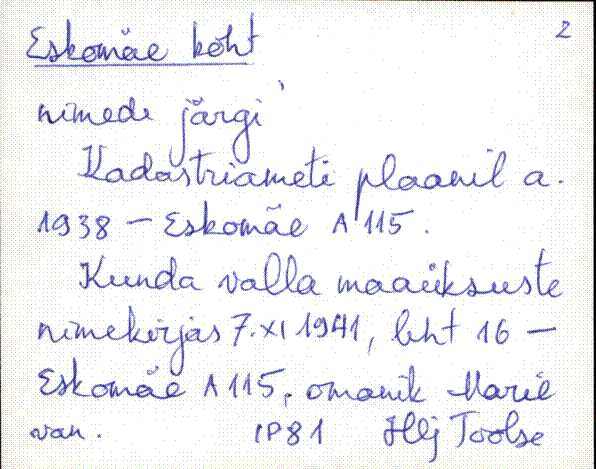 2
Eskomäe koht
nimede järgi
Kadastriameti plaanil a.
1938 – Eskomäe A 115.
Kunda valla maaüksuste
nimekirjas 7.XI 1941, leht 16 –
Eskomäe A 115, omanik Marie
van. IP81 Hlj Toolse